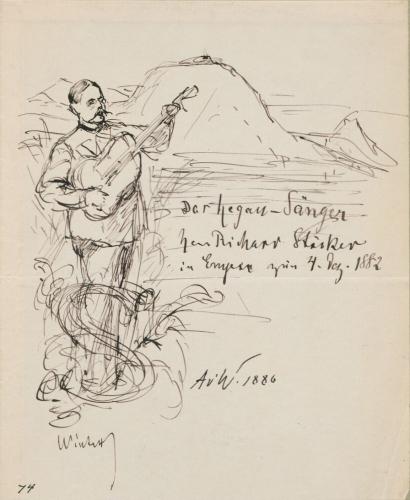 Der Hegau-Sänger
Herr Richard Stöcker
in Engen zum 4. Dez. 1882
AvW. 1886
74